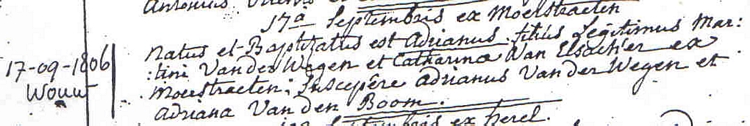 17ª Septembris ex Moerstraeten
17-09-1806
Wouw
natus et Baptizatus est Adrianus filius Legitimus Mar:
:tini Van der Wegen et Catharina Van Elsacker ex
Moerstraeten; Suscepêre Adrianus Van der Wegen et
Adriana Van den Boom.
Septembris ex herel.